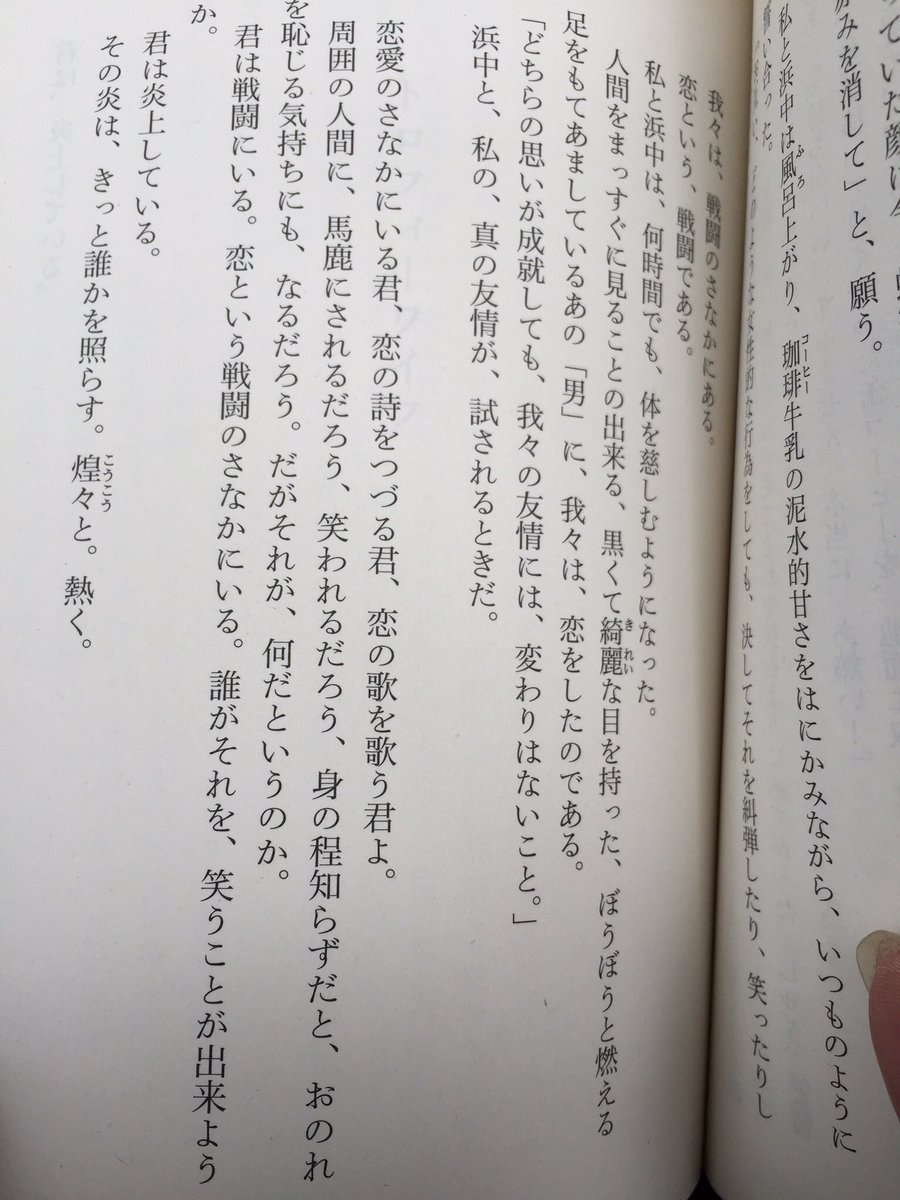 ていた顔に
みを消して」と、願う。
私と浜中は風呂上がり、珈琲牛乳の泥水的甘さをはにかみながら、いつものように
合った。
のような女性的な行為をしても、決してそれを糾弾したり、笑ったりし
我々は、戦闘のさなかにある。
恋という、戦闘である。
私と浜中は、何時間でも、体を慈しむようになった。
人間をまっすぐに見ることの出来る、黒くて綺麗な目を持った、ぼうぼうと燃える
足をもてあましているあの「男」に、我々は、恋をしたのである。
「どちらの思いが成就しても、我々の友情には、変わりはないこと。」
浜中と、私の、真の友情が、試されるときだ。
恋愛のさなかにいる君、恋の詩をつづる君、恋の歌を歌う君よ。
周囲の人間に、馬鹿にされるだろう、笑われるだろう、身の程知らずだと、おのれ
を恥じる気持ちにも、なるだろう。だがそれが、何だというのか。
君は戦闘にいる。恋という戦闘のさなかにいる。誰がそれを、笑うことが出来よう
か。
君は炎上している。
その炎は、きっと誰かを照らす。煌々と。熱く。